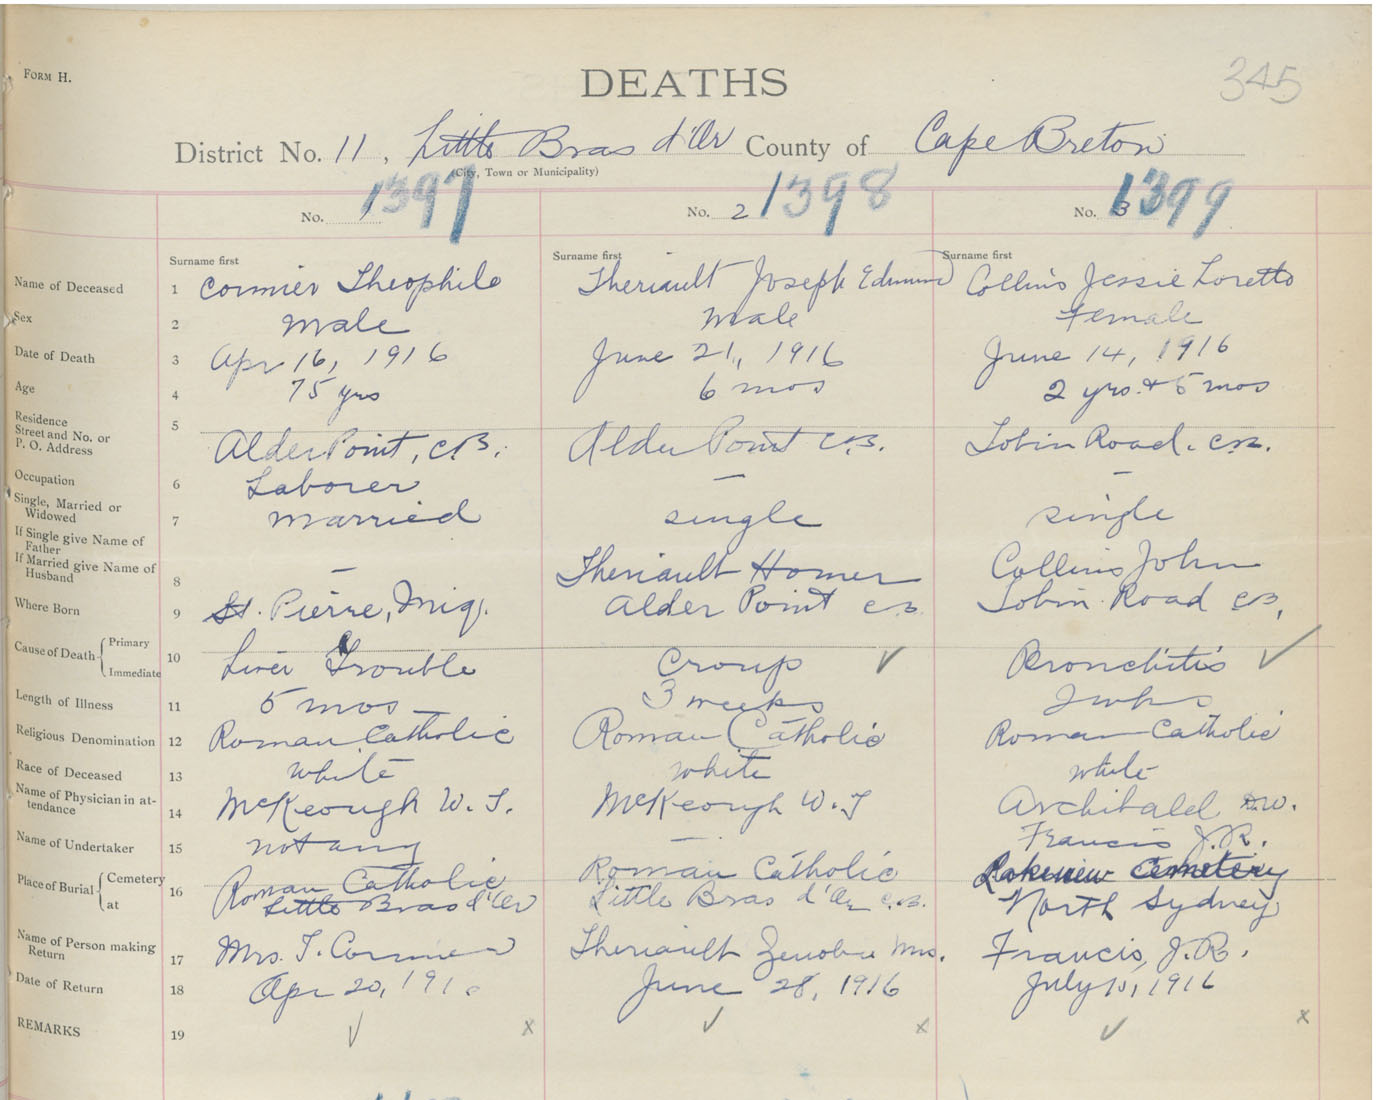 FORM H.
DEATHS
345
District No. 11, Little Bras d'Or County of Cape Breton
(City, Town or Municipality)
No. 1 1397 No. 2 1398 No. 3 1399
Surname first Surname first Surname first
Name of Deceased 1 Cormier Theophile Theriault Joseph Edmund Collins Jessie Loretto
Sex 2 Male Male Female
Date of Death 3 Apr 16, 1916 June 21, 1916 June 14, 1916
Age 4 75 yrs 6 mos 2 yrs. & 5 mos
Residence
Street and No. or
P. O. Address 5 Alder Point, C.B. Alder Point C.B. Tobin Road. C.B.
Occupation 6 Laborer — —
Single, Married or
Widowed 7 married single single
If Single give Name of
Father
If Married give Name of
Husband 8 — Theriault Homer Collins John
Where Born 9 St. Pierre, Miq. Alder Point C.B. Tobin Road C.B.
Cause of Death Primary
Immediate 10 Liver Trouble Croup ✓ Bronchitis ✓
Length of Illness 11 5 mos 3 weeks 2 wks
Religious Denomination 12 Roman Catholic Roman Catholic Roman Catholic
Race of Deceased 13 white white white
Name of Physician in at-
tendance 14 McKeough W. J. McKeough W. J Archibald W.
Name of Undertaker 15 not any — Francis J. R.
Place of Burial Cemetery 16 Roman Catholic Roman Catholic Lakeview Cemetery
at Little Bras d'Or Little Bras d'Or C.B. North Sydney
Name of Person making
Return 17 Mrs. T. Cormier Theriault Zenobie Mrs. Francis, J. R.
Date of Return 18 Apr 20, 191 June 28, 1916 July 10, 1916
REMARKS 19 ✓ x ✓ x ✓ x